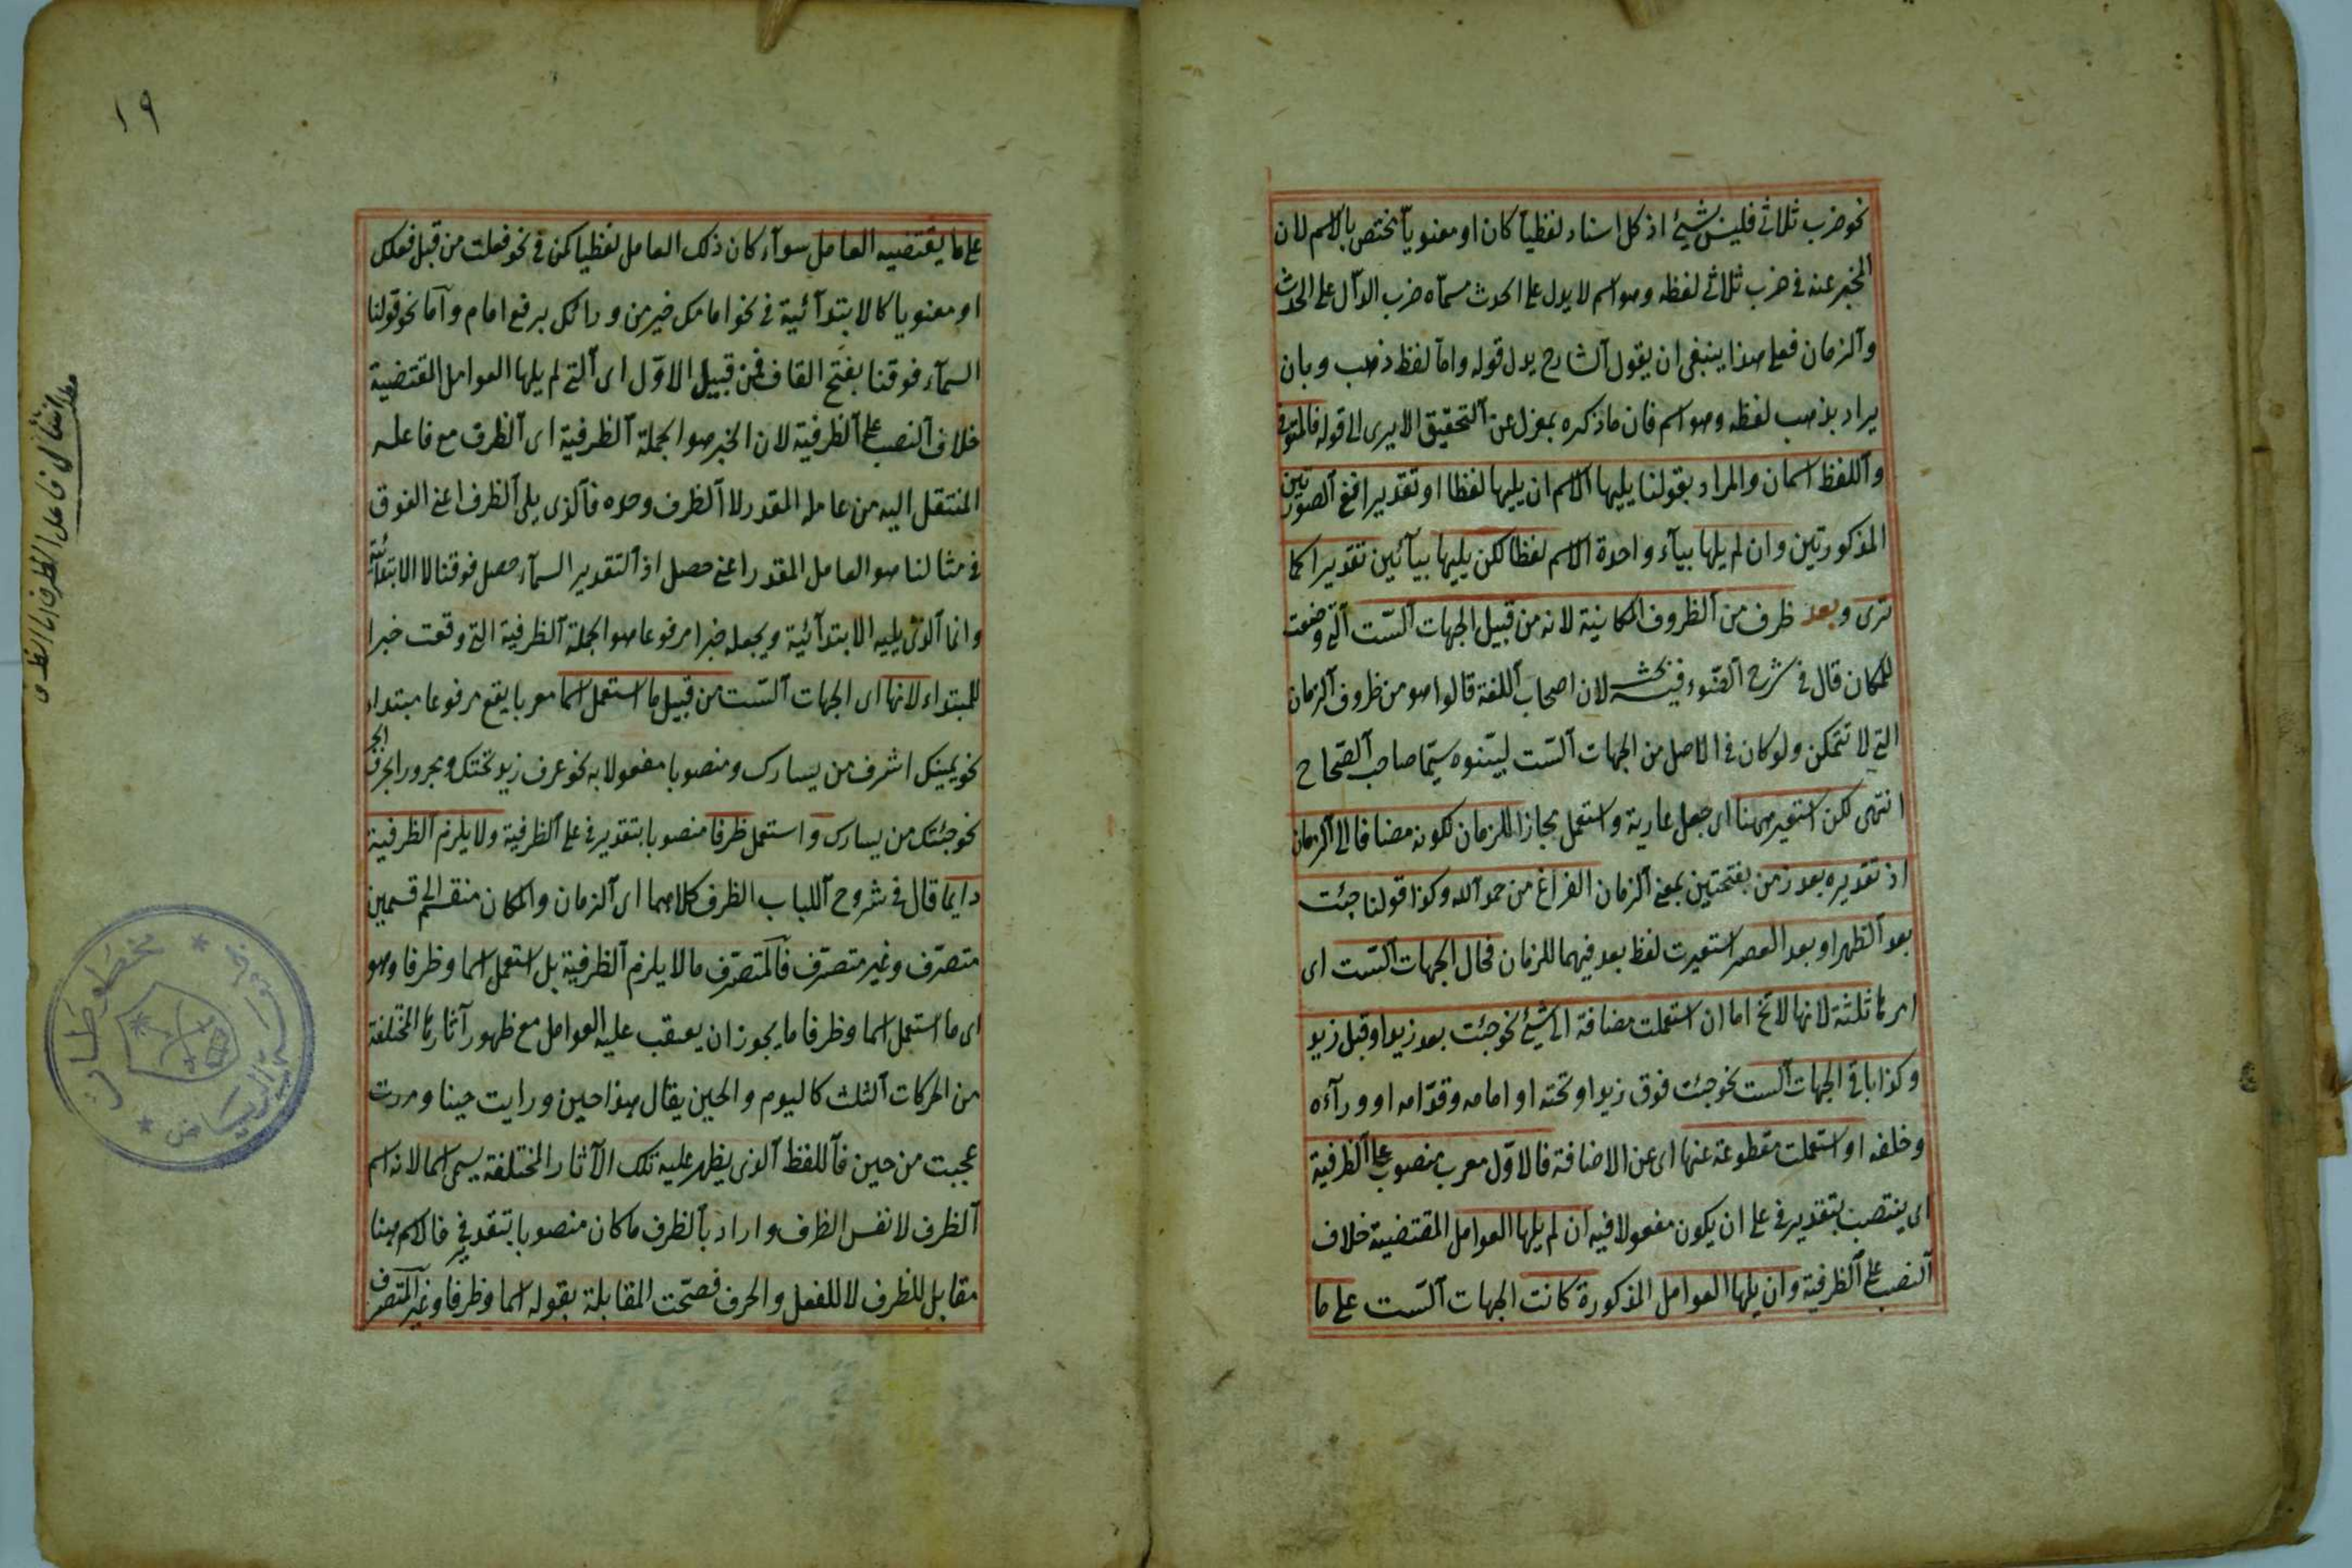 نحو ضرب ثلاثي فليس بشيئ اذ كل اسناد لفظياً كان او معنوياً يختص بالاسم لان
المخبر عنه في ضرب ثلاثي لفظه وهو اسم لا يدل على الحدث مسماه ضرب الدال على الحدث
والزمان فعلى هذا ينبغي ان يقول الشارح بدل قوله واما لفظ ذهب وبان
يراد بذهب لفظه وهو اسم فان ما ذكره بمعزل عن التحقيق الا يرى الى قوله
واللفظ اسمان والمراد بقولنا يليها الاسم ان يليها لفظا او تقديرا ففي الصورتين
المذكورتين وان لم يلها بياء واحدة الاسم لفظا لكن يليها بيائين تقديرا كما
ترى وبعد ظرف من الظروف المكانية لانه من قبيل الجهات الست التي وضعت
للمكان قال في شرح الضوء فيه بحث لان اصحاب اللغة قالوا هو من ظروف الزمان
التي لا تتمكن ولو كان في الاصل من الجهات الست ليبنوه سيما صاحب الصحاح
انتهى لكن استعير ههنا اى جعل عارية واستعمل مجازا للزمان لكونه مضافا الى الزمان
اذ تقديره بعد زمن بفتحتين بمعنى الزمان الفراغ من حمد الله وكذا قولنا جئت
بعد الظهر او بعد العصر استعيرت لفظ بعد فيهما للزمان فحال الجهات الست اى
امرها ثلثة لانها لا تخ اما ان استعملت مضافة الى شيئ نحو جئت بعد زيد او قبل زيد
وكذا باقي الجهات الست نحو جئت فوق زيد او تحته او امامه وقدامه او وراءه
وخلفه او استعملت مقطوعة عنها اى عن الاضافة فالاول معرب منصوب على الظرفية
اى ينتصب بتقدير في على ان يكون مفعولا فيه ان لم يلها العوامل المقتضية خلاف
النصب على الظرفية وان يلها العوامل المذكورة كانت الجهات الست على ما
١٩
على ما يقتضيه العامل سواء كان ذلك العامل لفظيا كمن في نحو فعلت من قبل فعلك
او معنويا كالابتدائية في نحو امامك خير من ورائك برفع امام واما نحو قولنا
السماء فوقنا بفتح القاف فمن قبيل الاول اى التي لم يلها العوامل المقتضية
خلاف النصب على الظرفية لان الخبر هو الجملة الظرفية اى الظرف مع فاعله
المنتقل اليه من عامله المقدر لا الظرف وحده فالذى يلى الظرف اعنى الفوق
في مثالنا هو العامل المقدر اعنى حصل اذ التقدير السماء حصل فوقنا لا الابتدائية
وانما الذى يليه الابتدائية ويجعله خبرا مرفوعا هو الجملة الظرفية التي وقعت خبرا
للمبتداء لانها اى الجهات الست من قبيل ما استعمل اسما معربا يقع مرفوعا مبتداء
نحو يمينك اشرف من يسارك ومنصوبا مفعولا به نحو عرف زيد تحتك ومجرورا بحرف الجر
نحو جئتك من يسارك واستعمل ظرفا منصوبا بتقدير في على الظرفية ولا يلزم الظرفية
دايما قال في شروح اللباب الظرف كلاهما اى الزمان والمكان منقسم الى قسمين
متصرف وغير متصرف فالمتصرف ما لا يلزم الظرفية بل استعمل اسما وظرفا وهو
اى ما استعمل اسما وظرفا ما يجوز ان يعتقب عليه العوامل مع ظهور آثارها المختلفة
من الحركات الثلث كاليوم والحين يقال هذا حين ورايت حينا ومررت
عجبت من حين فاللفظ الذى يظهر عليه تلك الآثار المختلفة يسمى اسما لانه اسم
الظرف لا نفس الظرف واراد بالظرف ما كان منصوبا بتقدير في فالاسم ههنا
مقابل للظرف لا للفعل والحرف فصحت المقابلة بقوله اسما وظرفا وغير المتصرف
مخطوطات
الرياض